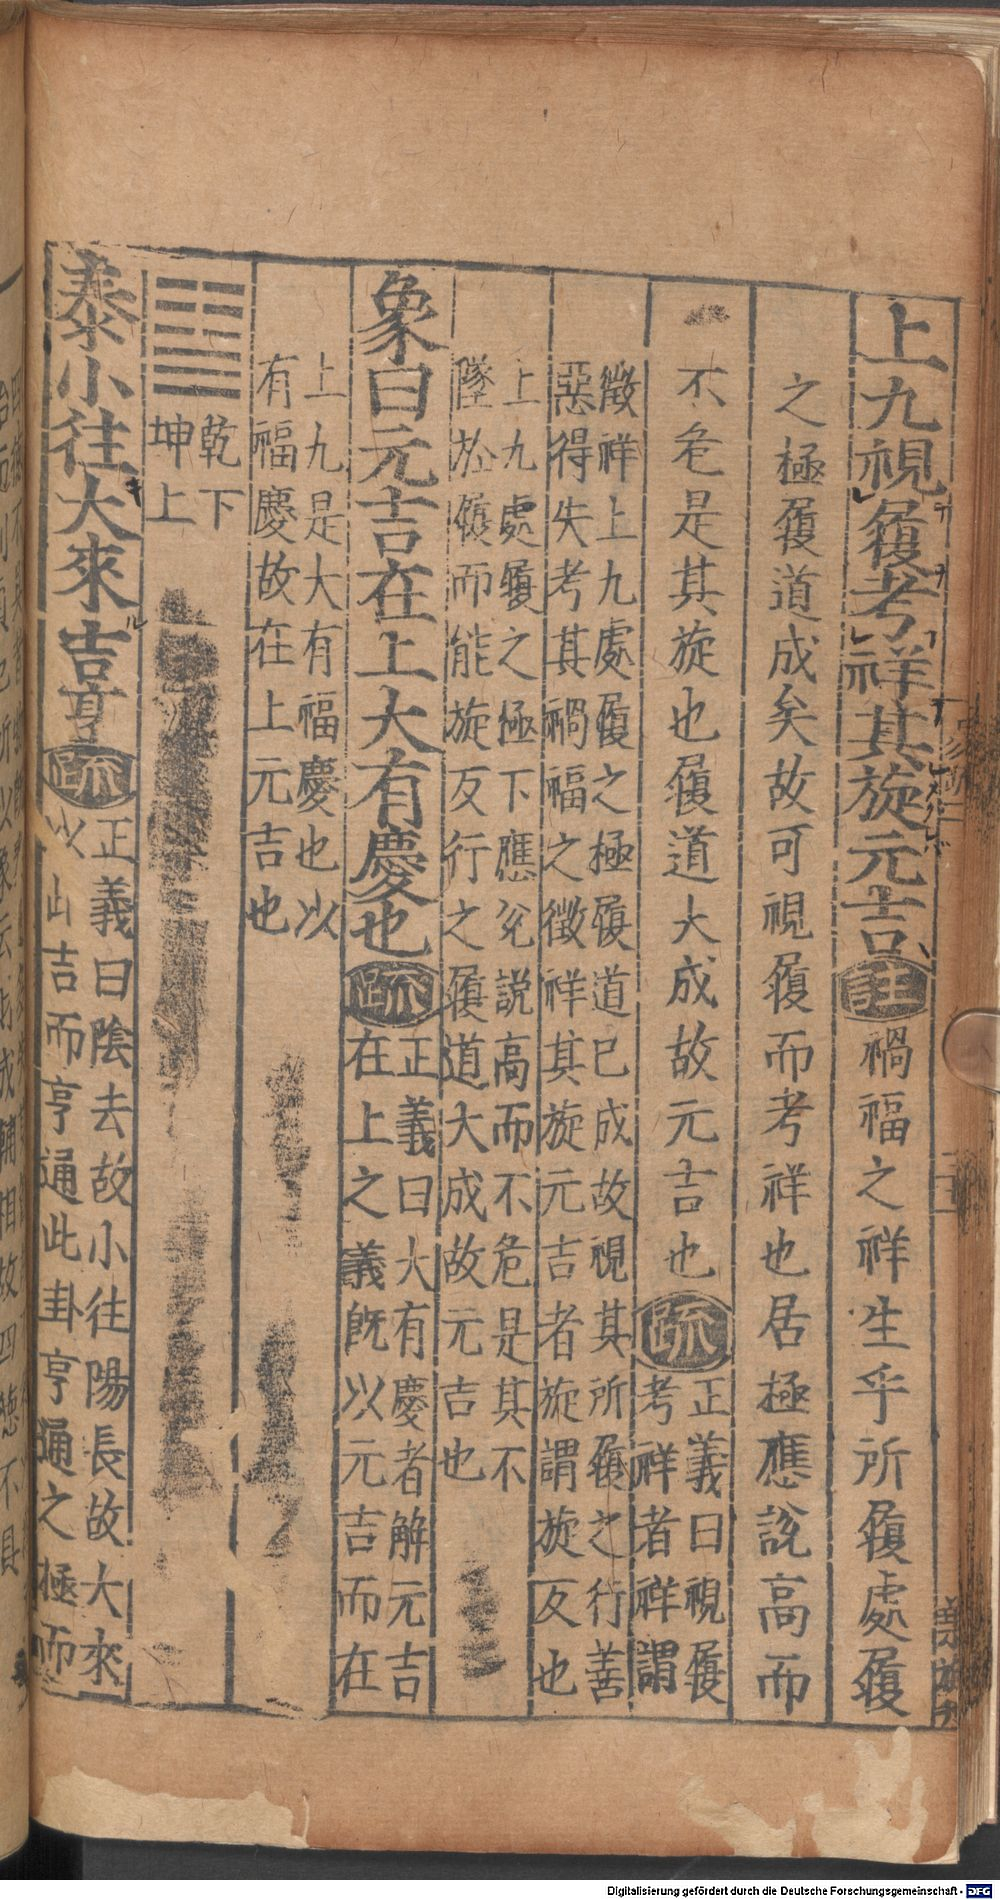 上九視履考祥其旋元吉註禍福之祥生乎所履處履
之極履道成矣故可視履而考祥也居極應說高而
不危是其旋也履道大成故元吉也疏正義曰視履
考祥者祥謂
徵祥上九處履之極履道已成故視其所履之行善
惡得失考其禍福之徵祥其旋元吉者旋謂旋反也
上九處履之極下應兊說高而不危是其不
墜於履而能旋反行之履道大成故元吉也
象曰元吉在上大有慶也疏正義曰大有慶者解元吉
在上之義旣以元吉而在
上九是大有福慶也以
有福慶故在上元吉也
乾下
坤上
泰小往大來吉亨疏正義曰陰去故小往陽長故大來
以此吉而亨通此卦亨通之極而
Digitalisierung gefördert durch die Deutsche Forschungsgemeinschaft - DFG